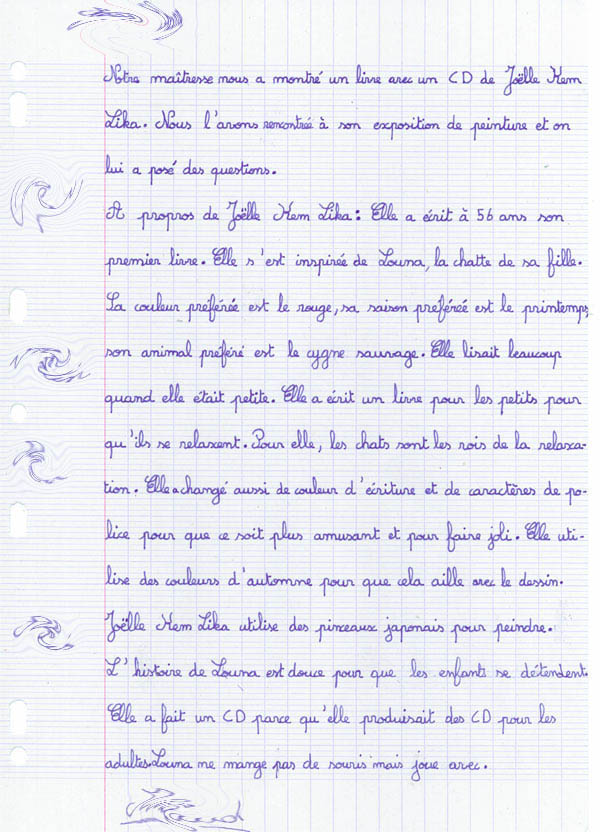 Notre maîtresse nous a montré un livre avec un CD de Joëlle Kem
Lika. Nous l'avons rencontrée à son exposition de peinture et on
lui a posé des questions.
A propos de Joëlle Kem Lika : Elle a écrit à 56 ans son
premier livre. Elle s'est inspirée de Louna, la chatte de sa fille.
Sa couleur préférée est le rouge, sa saison préférée est le printemps,
son animal préféré est le cygne sauvage. Elle lisait beaucoup
quand elle était petite. Elle a écrit un livre pour les petits pour
qu'ils se relaxent. Pour elle, les chats sont les rois de la relaxa-
tion. Elle a changé aussi de couleur d'écriture et de caractères de po-
lice pour que ce soit plus amusant et pour faire joli. Elle uti-
lise des couleurs d'automne pour que cela aille avec le dessin.
Joëlle Kem Lika utilise des pinceaux japonais pour peindre.
L'histoire de Louna est douce pour que les enfants se détendent.
Elle a fait un CD parce qu'elle produisait des CD pour les
adultes. Louna ne mange pas de souris mais joue avec.